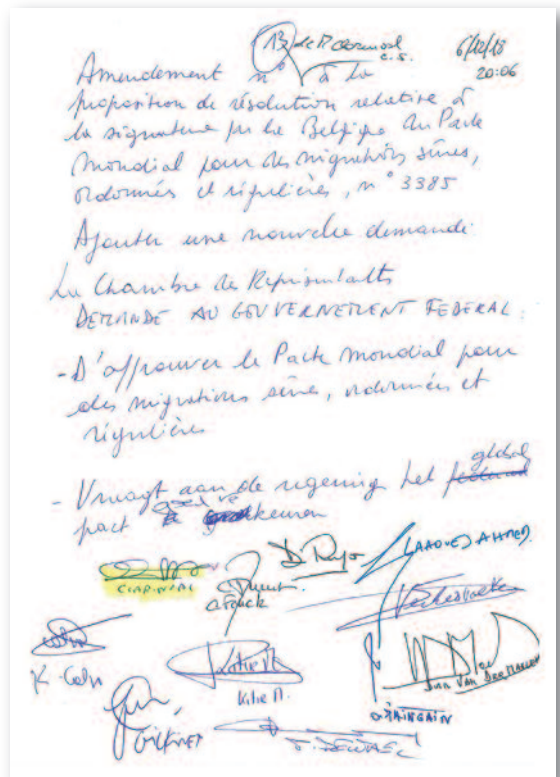 6/12/18
20:06
C.S.
Amendement n° à la
proposition de résolution relative à
la signature par la Belgique du Pacte
Mondial pour des migrations sûres,
ordonnées et régulières, n° 3385
Ajouter une nouvelle demande
La Chambre des Représentants
DEMANDE AU GOUVERNEMENT FEDERAL :
- D'approuver le Pacte mondial pour
des migrations sûres, ordonnées et
régulières
- Vraagt aan de regering het global
pact goed te keuren
CLARINVAL
LAAOUEJ AHMED
Kitir M.
GILKINET
O. MAINGAIN
DIRK VAN DER MAELEN